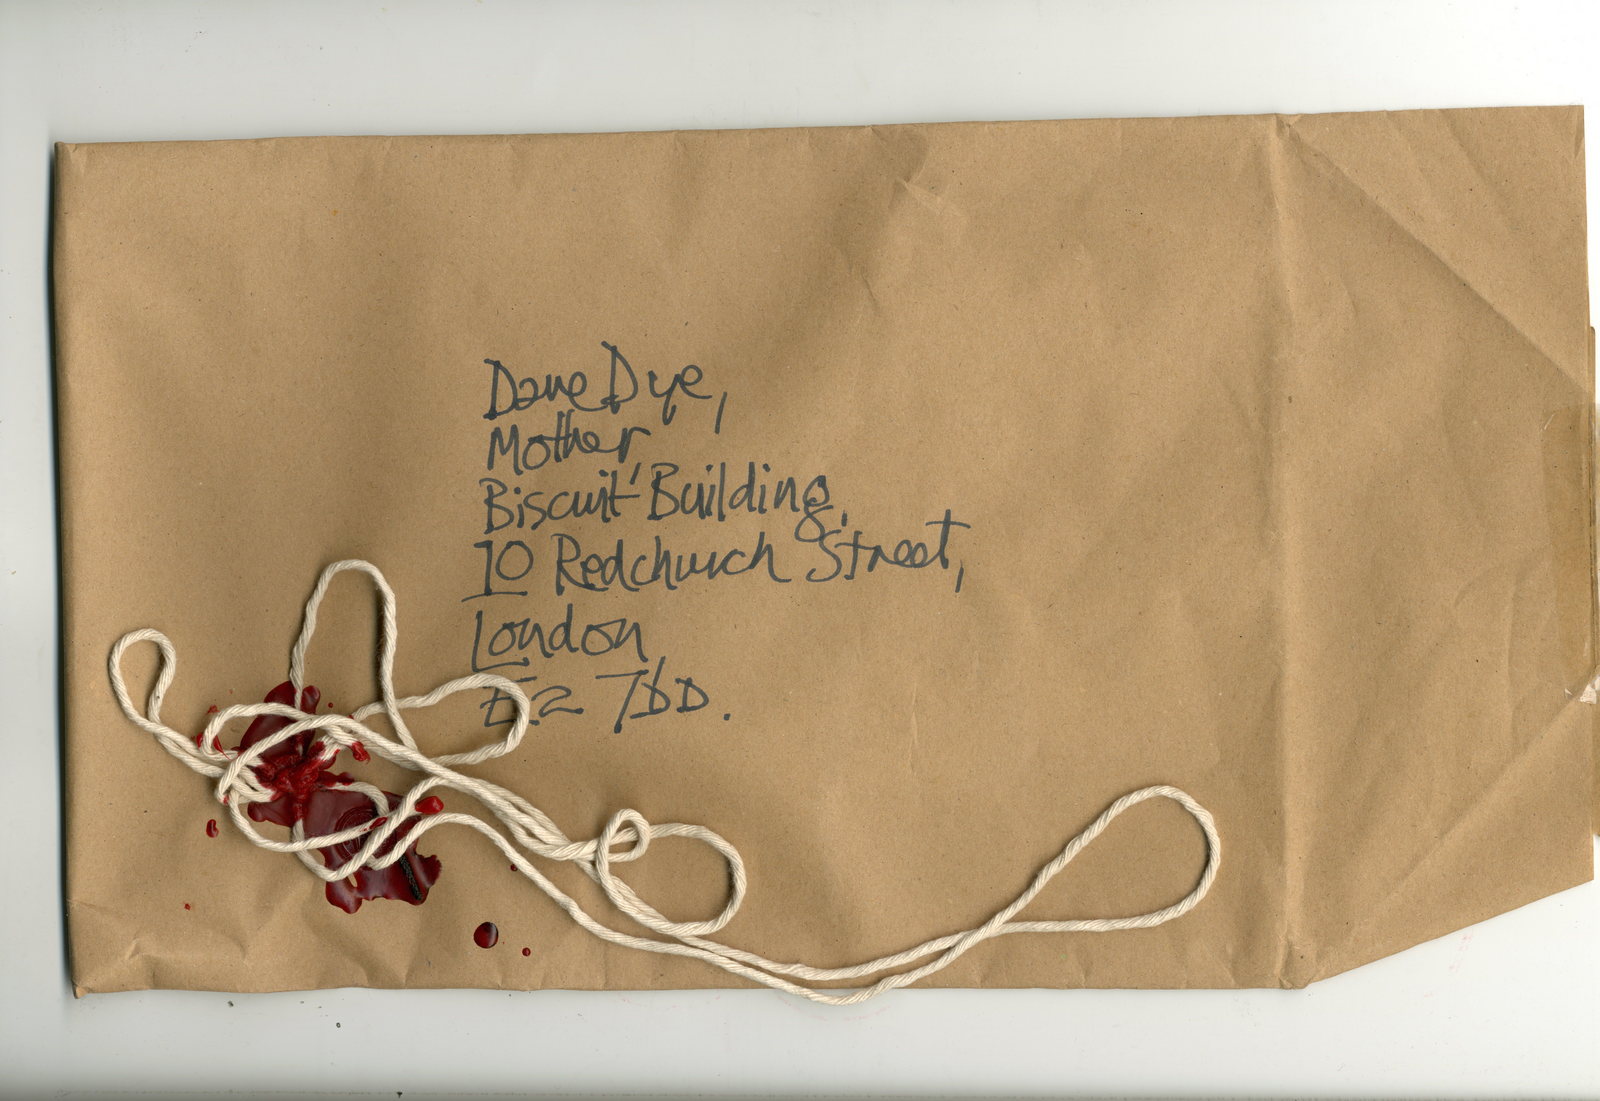 Dave Dye,
Mother
Biscuit Building,
10 Redchurch Street,
London,
E2 7DD.